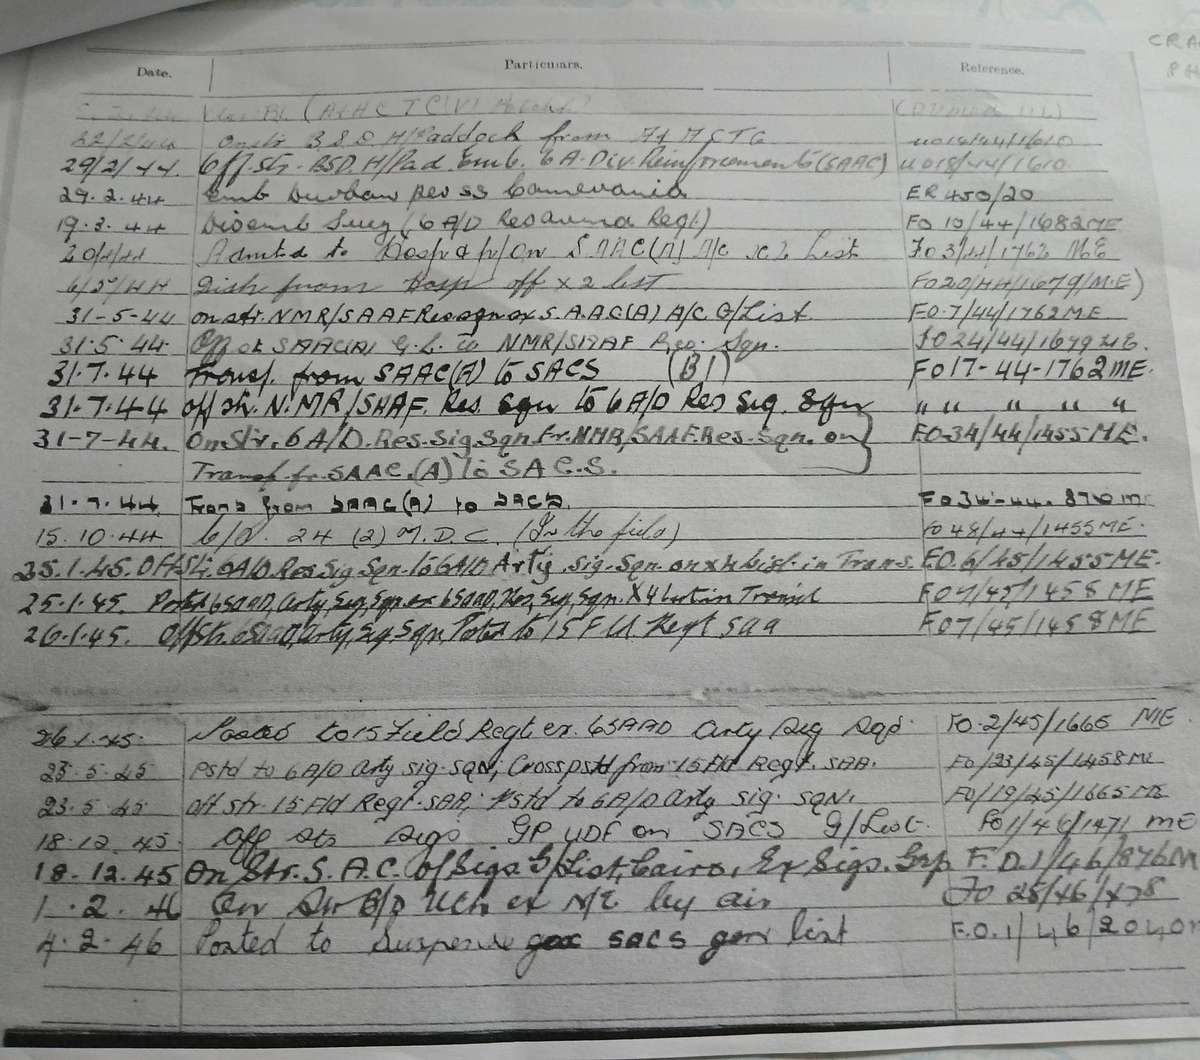 CRA
PH
Date. Particulars. Reference.
(A&HCTC(V)
22/2/44 Onstr B.S.D H/Paddock from A&HCTC UO18/44/1610
29/2/44. Off. Str. BSD. H/Pad. Emb. 6 A. Div. Reinforcements (SAAC) UO18/44/1610
29.2.44 Emb Durban per ss ER 450/20
19.3.44 Disemb Suez (6 A/D Regt) FO 10/44/1682ME
20/4/44 Admtd to Hosp & p/on SAAC(A) A/c X2 List FO3/44/1762 ME
6/5/44 Disch from Hosp off X 2 list FO20/44/1679/M.E)
31-5-44 on str. NMR/SAAF Recce Sqn ex S.A.A.C(A) A/C G/List. FO.7/44/1762ME.
31.5.44. Off str SAAC(A) G.L. to NMR/SAAF Rec. Sqn. FO24/44/1679ME.
31.7.44 Transf. from SAAC(A) to SACS (B1) FO17-44-1762ME.
31.7.44 off str. N.MR/SAAF. Res. Sqn to 6 A/D Res Sig. Sqn " " " " "
31-7-44. On Str. 6 A/D. Res. Sig. Sqn. Fr. NMR/SAAF. Res. Sqn. on FO.34/44/1455ME.
Transf. fr. SAAC.(A) to S.A.C.S.
31.7.44 Trans from SAAC(A) to SACS. FO34-44.
15.10.44 24 (2) M.D.C. (In the field) FO48/44/1455ME.
25.1.45. Off Str. 6A/D. Res. Sig. Sqn. to 6A/D Arty. Sig. Sqn. on X4 List. in Trans. FO.6/45/1455ME.
25.1.45. Posted 6SAAD, Arty, Sig, Sqn ex 6SAAD, Res, Sig, Sqn. X4 List in Transit FO7/45/1458ME
26.1.45. Off Str. 6SAAD, Arty, Sig Sqn, Posted to 15 Fd Regt SAA FO7/45/1458ME
26.1.45. Posted to 15 Field Regt ex. 6SAAD Arty Sig Sqd. FO.2/45/1665 ME.
23.5.45 Pstd to 6 A/D Arty sig. SQN, Cross pstd from 15 Fld Regt. SAA. FO/23/45/1458ME
23.5.45 off str. 15 Fld Regt. SAA, Pstd to 6A/D Arty Sig. SQN. FO/19/45/1665ME
18.12.45. Off Str Sigs GP UDF on SACS G/List. FO1/46/1471 ME
18.12.45 On Str. S.A.C. of Sigs. G/List, Cairo, Ex Sigs. Grp F.O.1/46/876M
1.2.46 On Str B/D ex M/E by air FO 25/46/
4.2.46 Posted to Suspense SACS gen list F.O.1/46/2040